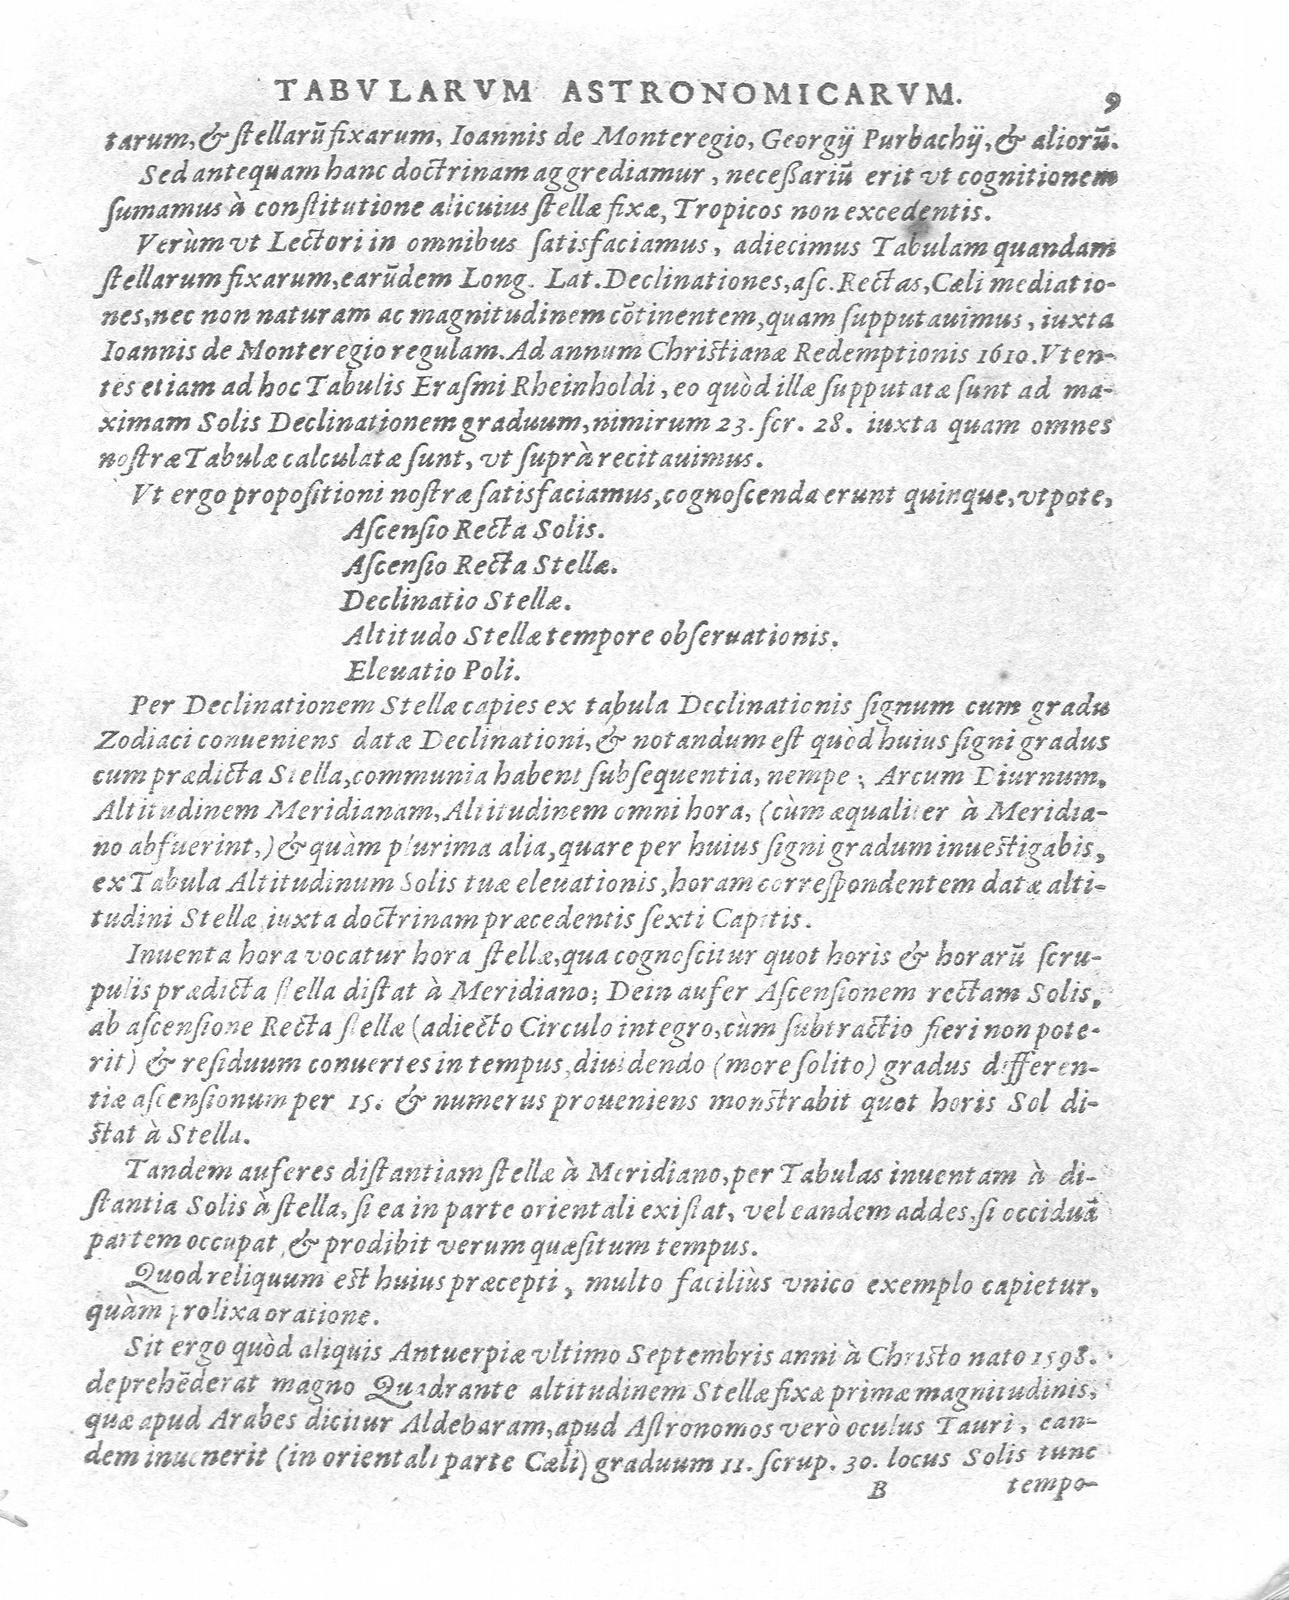 TABVLARVM ASTRONOMICARVM. 9
tarum, & ſtellarū fixarum, Ioannis de Monteregio, Georgij Purbachij, & aliorū.
Sed antequam hanc doctrinam aggrediamur, neceßariū erit vt cognitionem
ſumamus à conſtitutione alicuius ſtellæ fixæ, Tropicos non excedentis.
Verùm vt Lectori in omnibus ſatisfaciamus, adiecimus Tabulam quandam
ſtellarum fixarum, earūdem Long. Lat. Declinationes, aſc. Rectas, Cæli mediatio-
nes, nec non naturam ac magnitudinem cōtinentem, quam ſupputauimus, iuxta
Ioannis de Monteregio regulam. Ad annum Chriſtianæ Redemptionis 1610. Vten-
tes etiam ad hoc Tabulis Eraſmi Rheinholdi, eo quòd illæ ſupputatæ ſunt ad ma-
ximam Solis Declinationem graduum, nimirum 23. ſcr. 28. iuxta quam omnes
noſtræ Tabulæ calculatæ ſunt, vt ſuprà recitauimus.
Vt ergo propoſitioni noſtræ ſatisfaciamus, cognoſcenda erunt quinque, vtpote,
Aſcenſio Recta Solis.
Aſcenſio Recta Stellæ.
Declinatio Stellæ.
Altitudo Stellæ tempore obſeruationis.
Eleuatio Poli.
Per Declinationem Stellæ capies ex tabula Declinationis ſignum cum gradu
Zodiaci conueniens datæ Declinationi, & notandum eſt quòd huius ſigni gradus
cum prædicta Stella, communia habent ſubſequentia, nempe: Arcum Diurnum,
Altitudinem Meridianam, Altitudinem omni hora, (cùm æqualiter à Meridia-
no abfuerint,) & quàm plurima alia, quare per huius ſigni gradum inueſtigabis,
ex Tabula Altitudinum Solis tuæ eleuationis, horam correſpondentem datæ alti-
tudini Stellæ iuxta doctrinam præcedentis ſexti Capitis.
Inuenta hora vocatur hora ſtellæ, qua cognoſcitur quot horis & horarū ſcru-
pulis prædicta ſtella diſtat à Meridiano: Dein aufer Aſcenſionem rectam Solis,
ab aſcenſione Recta ſtellæ (adiecto Circulo integro, cùm ſubtractio fieri non pote-
rit) & reſiduum conuertes in tempus, diuidendo (more ſolito) gradus differen-
tiæ aſcenſionum per 15. & numerus proueniens monſtrabit quot horis Sol di-
ſtat à Stella.
Tandem auferes diſtantiam ſtellæ à Meridiano, per Tabulas inuentam à di-
ſtantia Solis à ſtella, ſi ea in parte orientali exiſtat, vel eandem addes, ſi occiduā
partem occupat, & prodibit verum quæſitum tempus.
Quod reliquum eſt huius præcepti, multo faciliùs vnico exemplo capietur,
quàm prolixa oratione.
Sit ergo quòd aliquis Antuerpiæ vltimo Septembris anni à Chriſto nato 1598.
deprehēderat magno Quadrante altitudinem Stellæ fixæ primæ magnitudinis,
quæ apud Arabes dicitur Aldebaram, apud Aſtronomos verò oculus Tauri, ean-
dem inuenerit (in orientali parte Cæli) graduum 11. ſcrup. 30. locus Solis tunc
B tempo-